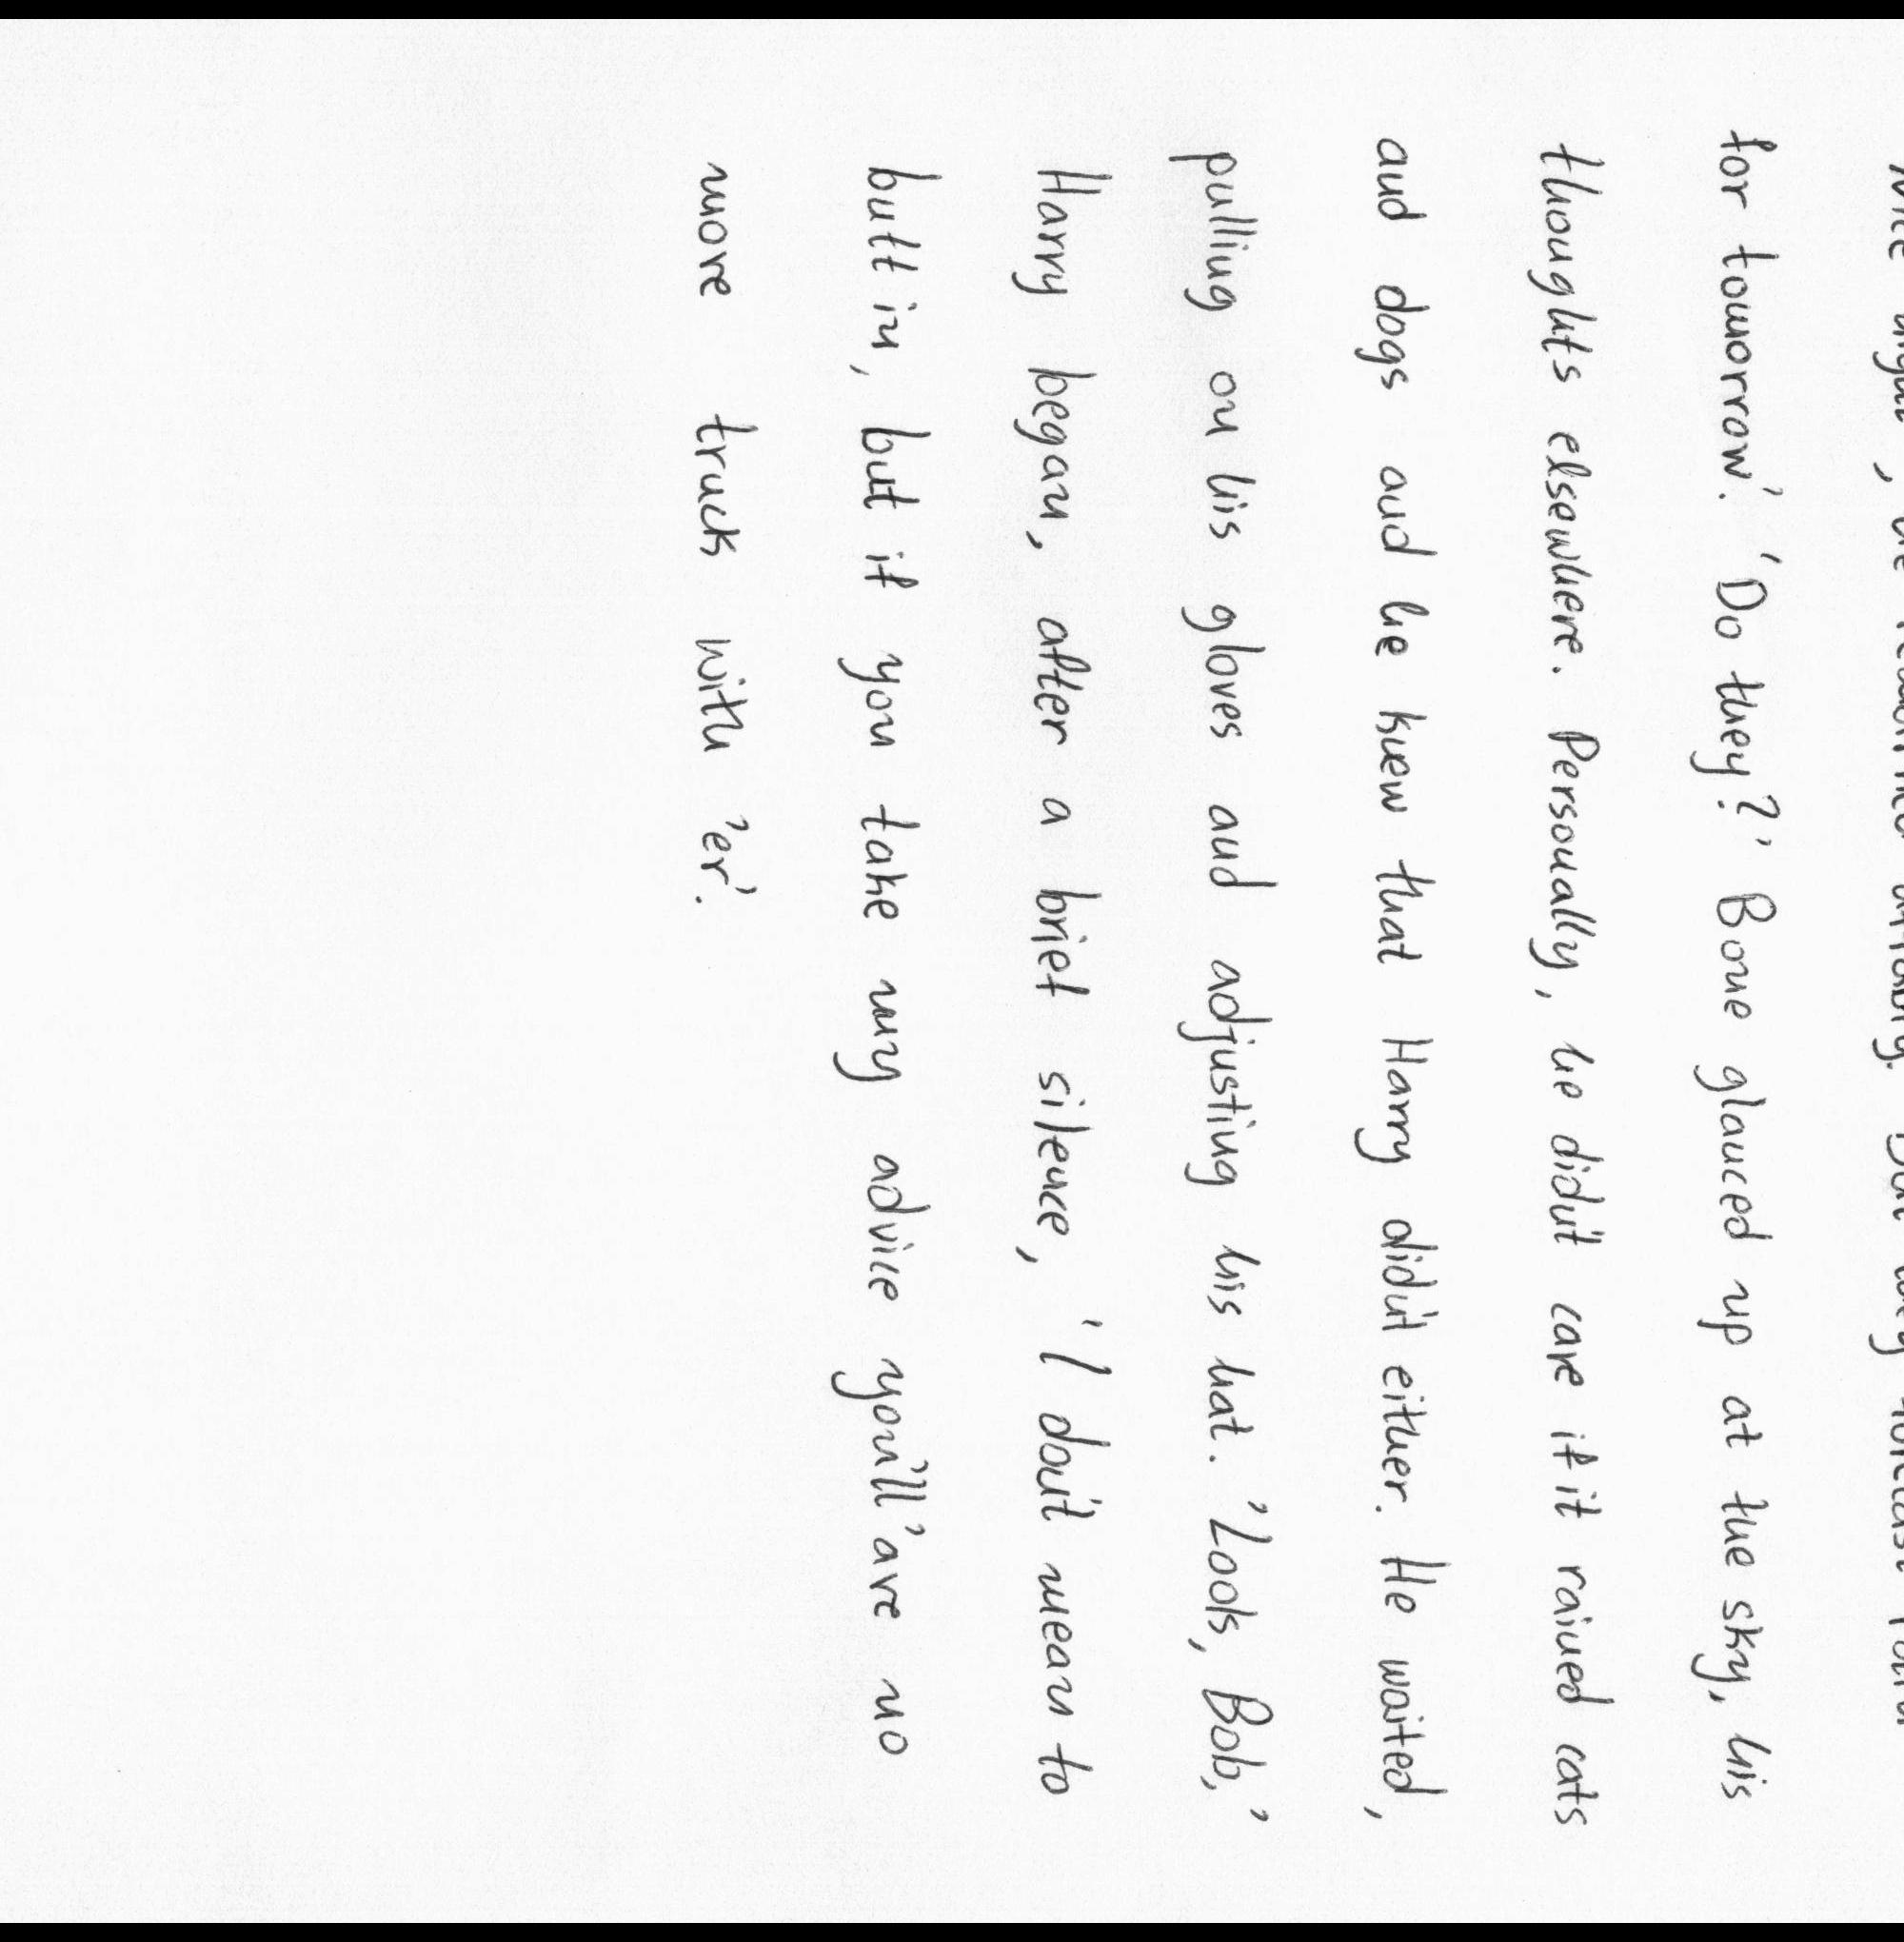 for tomorrow.' 'Do they?' Bone glanced up at the sky, his
thoughts elsewhere. Personally, he didn't care if it rained cats
and dogs and he knew that Harry didn't either. He waited,
pulling on his gloves and adjusting his hat. 'Look, Bob,'
Harry began, after a brief silence, 'I don't mean to
butt in, but if you take my advice you'll 'ave no
more truck with 'er'.